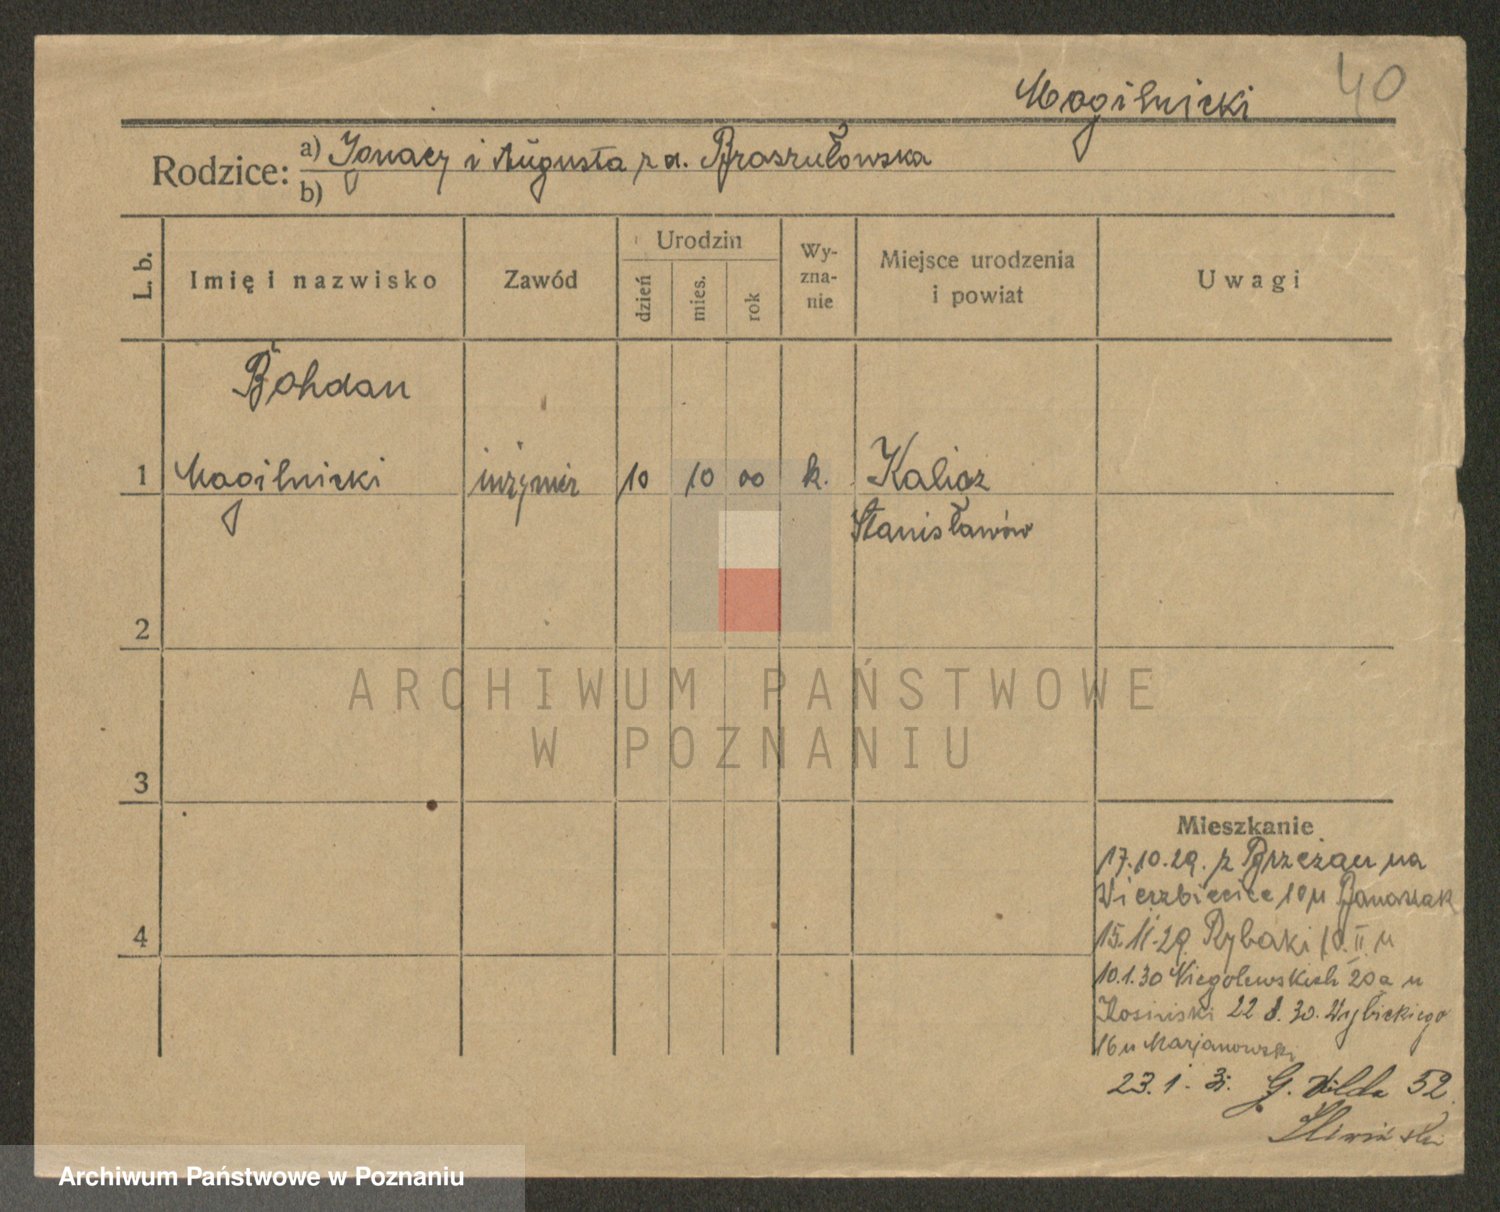 Mogilnicki 40
Rodzice: a) Ignacy i Augusta z d. Braszułowska
b)
L. b. Imię i nazwisko Zawód Urodzin dzień mies. rok Wyznanie Miejsce urodzenia i powiat Uwagi
Bohdan
1 Mogilnicki inżynier 10 10 00 k. Kalisz
Stanisławów
2
3
4
Mieszkanie
17.10.29. z Brzeżan na
Wierzbięcice 10 u Banaszak
15.11.29 Rybaki 10. II u
10.1.30 Niegolewskich 20a u
Kosiński 22 8. 30. Wybickiego
16 u Marjanowski
23. 1. 31. G. Wilda 52
Śliwiński
ARCHIWUM PAŃSTWOWE
W POZNANIU
Archiwum Państwowe w Poznaniu